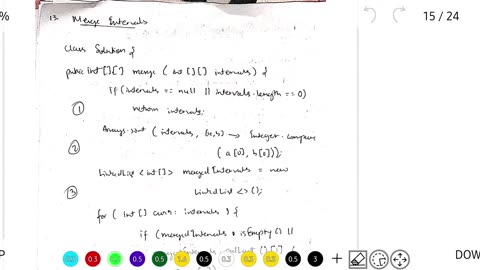 15 / 24
13. Merge Intervals
class Solution {
public int[][] merge ( int [][] intervals) {
if (intervals == null || intervals.length == 0)
return intervals;
①
Arrays.sort ( intervals, (a,b) → Integer.compare
( a[0], b[0]));
②
LinkedList <int[]> mergedIntervals = new
LinkedList <>();
③
for ( int [] curr : intervals ) {
if (mergedIntervals . isEmpty () ||
0.3 0.5 0.5 0.5 0.3 0.5 3
DOW